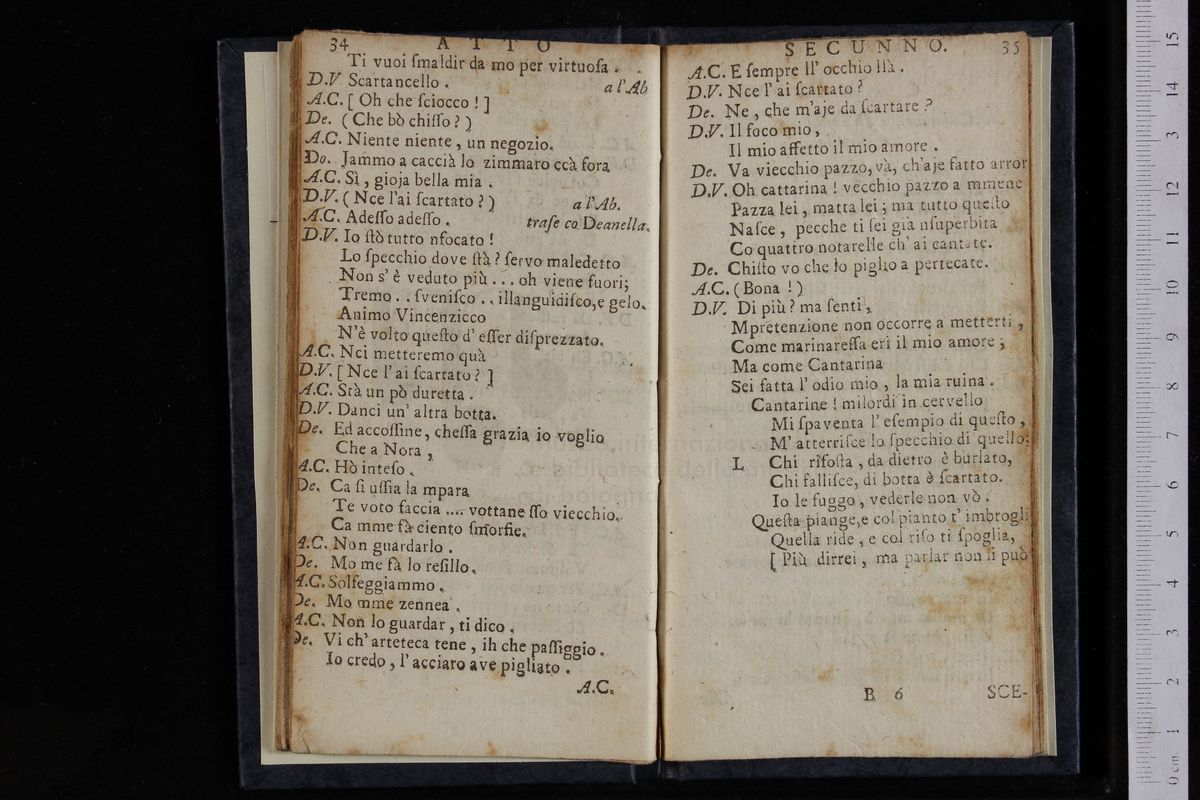 34 ATTO
Ti vuoi ſmaldir da mo per virtuoſa .
D.V Scartancello . a l'Ab
A.C. [ Oh che ſciocco ! ]
De. ( Che bò chiſſo ? )
A.C. Niente niente , un negozio.
Do. Jammo a caccià lo zimmaro ccà fora
A.C. Sì , gioja bella mia .
D.V. ( Nce l'ai ſcartato ? ) a l'Ab.
A.C. Adeſſo adeſſo . traſe co Deanella.
D.V. Io ſtò tutto nfocato !
Lo ſpecchio dove ſtà ? ſervo maledetto
Non s' è veduto più . . . oh viene fuori;
Tremo . . ſveniſco . . illanguidiſco,e gelo.
Animo Vincenzicco
N'è volto queſto d' eſſer diſprezzato.
A.C. Nci metteremo quà
D.V. [ Nce l' ai ſcartato ? ]
A.C. Stà un pò duretta .
D.V. Danci un' altra botta.
De. Ed accoſſine, cheſſa grazia io voglio
Che a Nora ,
A.C. Hò inteſo .
De. Ca ſi uſſia la mpara
Te voto faccia .... vottane ſſo viecchio.
Ca mme fà ciento ſmorfie.
A.C. Non guardarlo .
De. Mo me fà lo reſillo.
A.C. Solfeggiammo .
De. Mo mme zennea .
A.C. Non lo guardar , ti dico .
De. Vi ch' arteteca tene , ih che paſſiggio .
Io credo , l' acciaro ave pigliato .
A.C.
SECUNNO. 35
A.C. E ſempre ll' occhio llà .
D.V. Nce l' ai ſcartato ?
De. Ne , che m'aje da ſcartare ?
D.V. Il foco mio ,
Il mio affetto il mio amore .
De. Va viecchio pazzo, và, ch'aje fatto arror
D.V. Oh cattarina ! vecchio pazzo a mmene
Pazza lei , matta lei ; ma tutto queſto
Naſce , pecche ti ſei già nſuperbita
Co quattro notarelle ch' ai cantate.
De. Chiſto vo che lo piglio a pertecate.
A.C. ( Bona ! )
D.V. Di più ? ma ſenti ,
Mpretenzione non occorre a metterti ,
Come marinareſſa eri il mio amore ;
Ma come Cantarina
Sei fatta l' odio mio , la mia ruina .
Cantarine ! milordi in cervello
Mi ſpaventa l' eſempio di queſto ,
M' atterriſce lo ſpecchio di quello:
L Chi riſoſta , da dietro è burlato,
Chi falliſce, di botta è ſcartato.
Io le fuggo , vederle non vò .
Queſta piange,e col pianto t' imbrogli
Quella ride , e col riſo ti ſpoglia,
[ Più dirrei , ma parlar non ſi può
B 6 SCE-
0 cm 1 2 3 4 5 6 7 8 9 10 11 12 13 14 15